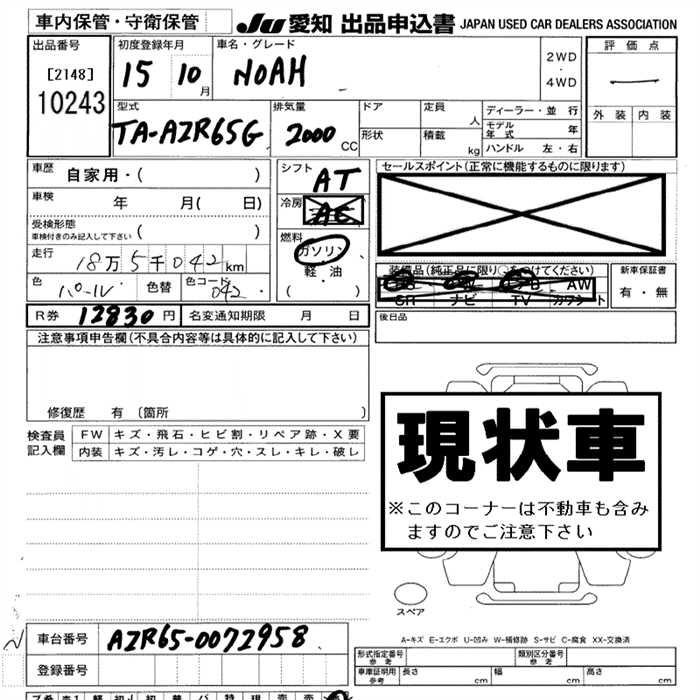 車内保管・守衛保管
JU 愛知 出品申込書 JAPAN USED CAR DEALERS ASSOCIATION
出品番号
[2148]
10243
初度登録年月
15 10月
車名・グレード
NOAH
2WD
・
4WD
評価点
外装 内装
型式
TA-AZR65G
排気量
2000 CC
ドア
形状
定員 人
積載 kg
ディーラー・並行
モデル年式 年
ハンドル 左・右
車歴 自家用・( )
車検 年 月( 日)
受検形態
車検付きのみ記入して下さい ( )
走行 18万5千042km
色 パール 色替 色コード 042
シフト AT
冷房 AC
燃料 ガソリン
・
軽・油
( ・ )
セールスポイント(正常に機能するものに限ります)
装備品(純正品に限り○をつけてください)
AW
SR ナビ TV カワシート
新車保証書
有・無
後日品
R券 12830円 名変通知期限 月 日
注意事項申告欄(不具合内容等は具体的に記入して下さい)
修復歴 有 (箇所 )
検査員記入欄
FW キズ・飛石・ヒビ割・リペア跡・X要
内装 キズ・汚レ・コゲ・穴・スレ・キレ・破レ
現状車
※このコーナーは不動車も含み
ますのでご注意下さい
スペア
A-キズ E-エクボ U-凹み W-補修跡 S-サビ C-腐食 XX-交換済
車台番号 AZR65-0072958
登録番号
形式指定番号
参考
類別区分番号
参考
車庫証明用
参考
長さ cm 幅 cm 高さ cm